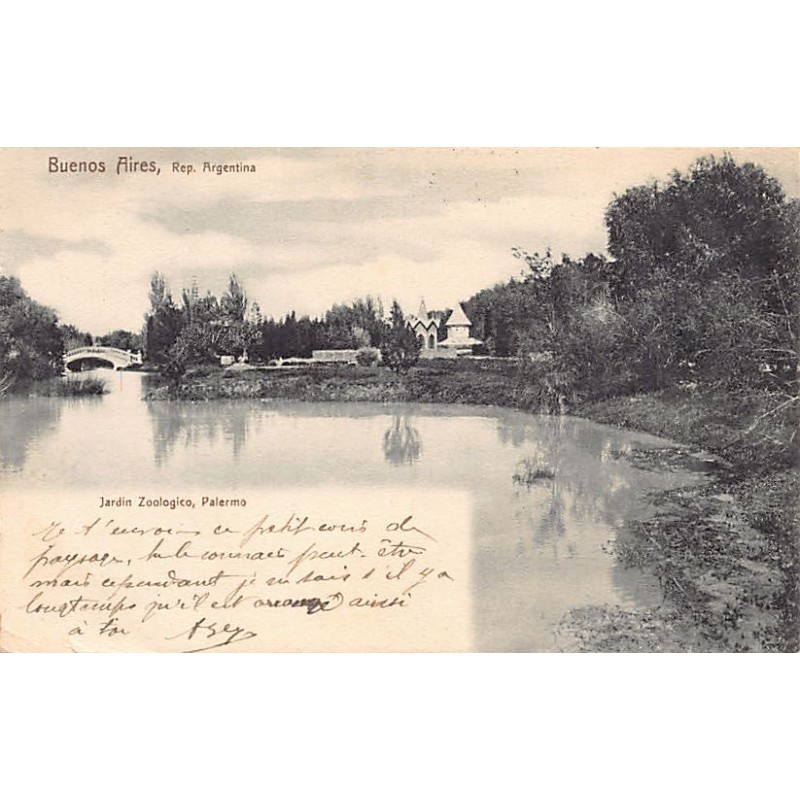 Buenos Aires, Rep. Argentina
Jardin Zoologico, Palermo
Je t'envoie ce petit coin de
paysage, tu le connais peut-être
mais cependant je ne sais s'il y a
longtemps qu'il est arrangé ainsi
à toi